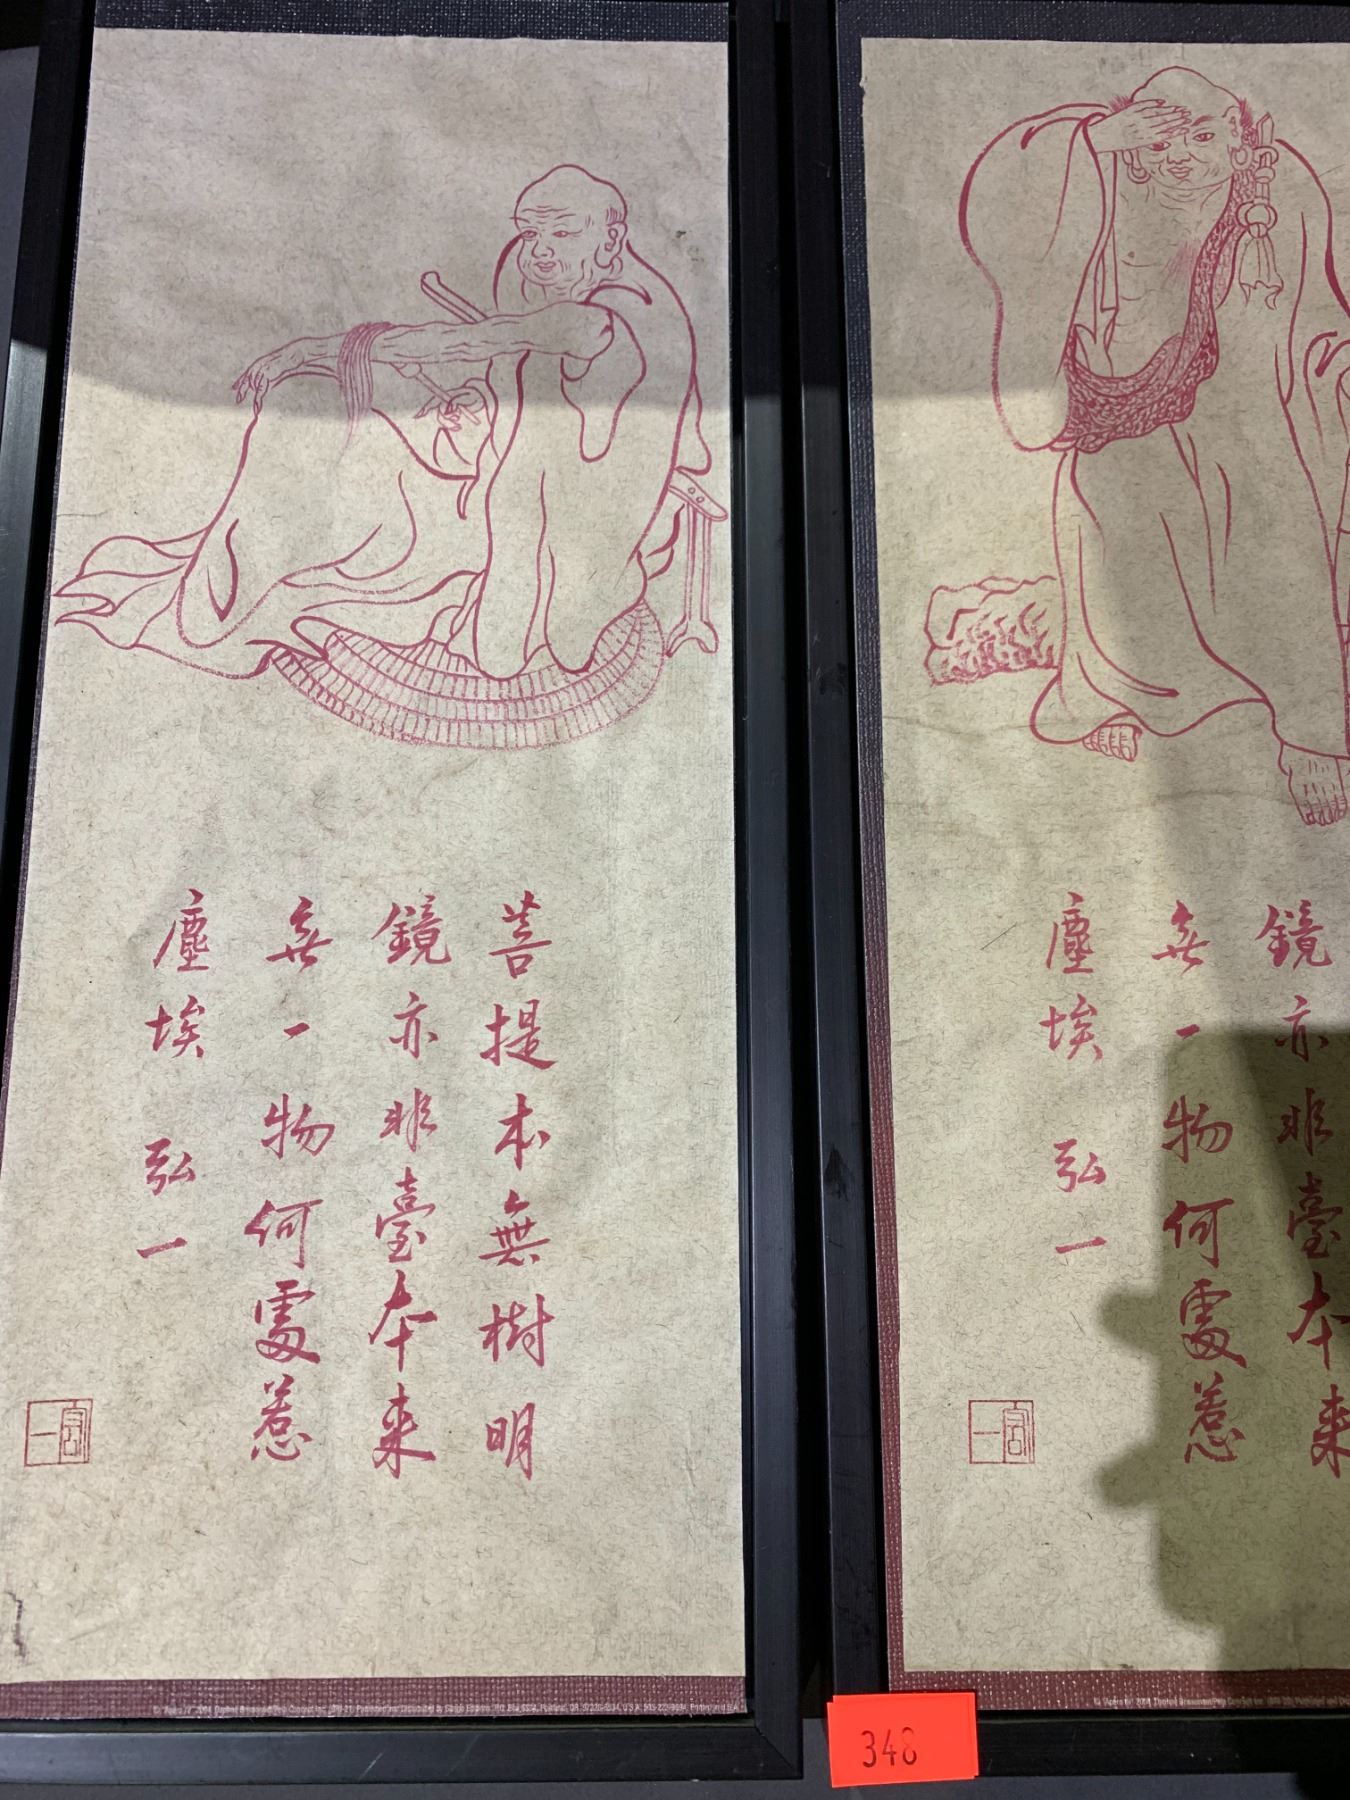 菩提本無樹明
鏡亦非臺本来
無一物何處惹
塵埃 弘一
鏡亦非臺本来
無一物何處惹
塵埃 弘一
348